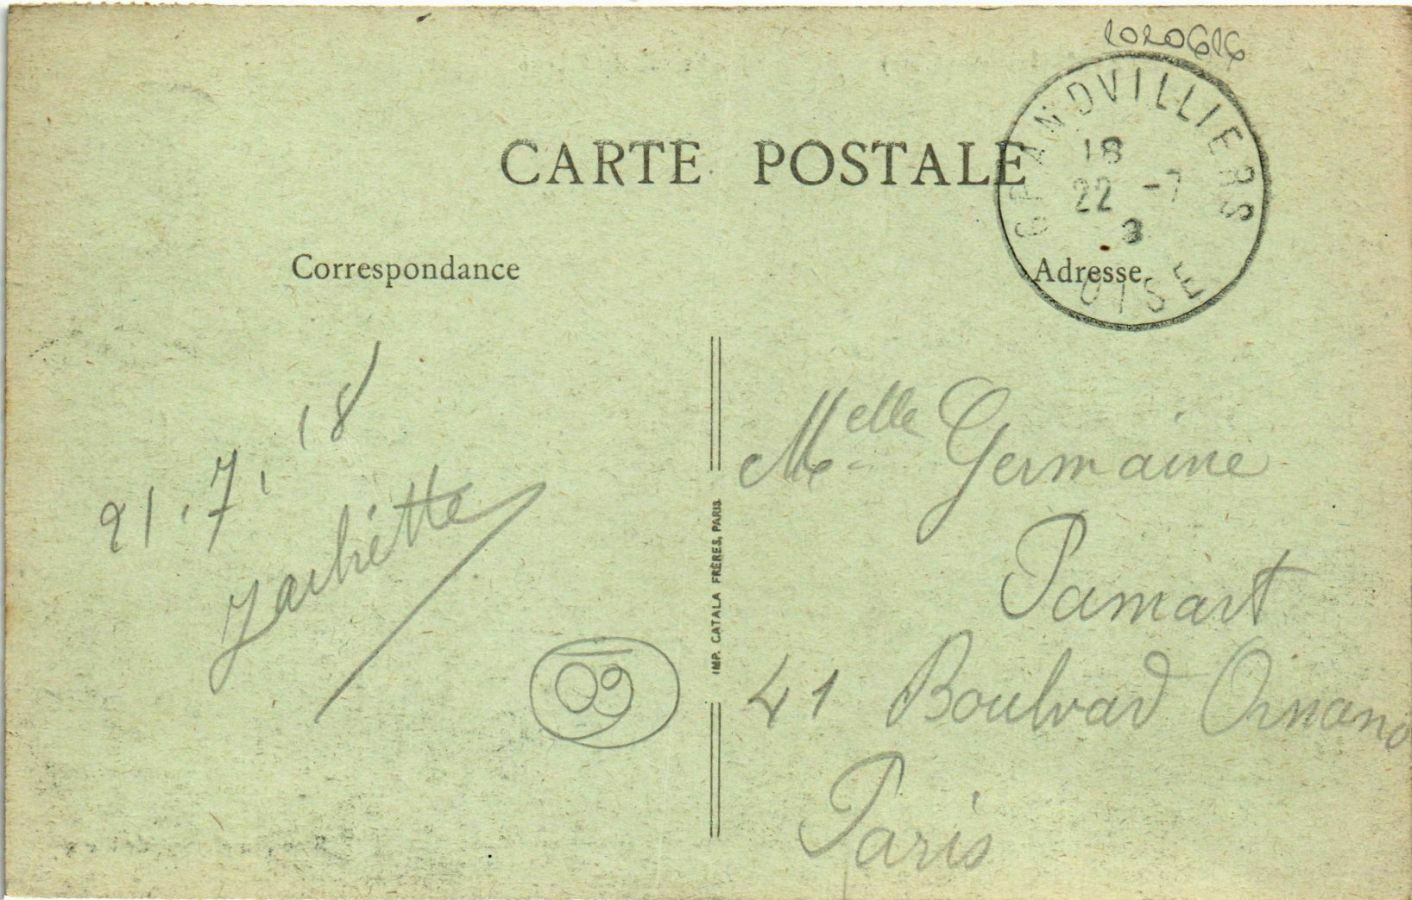 1020616
GRANDVILLIERS
18
22 -7
OISE
CARTE POSTALE
Correspondance
Adresse
21.7.18
09
IMP. CATALA FRÈRES, PARIS
Melle Germaine
Pamart
41 Boulvard Ornano
Paris